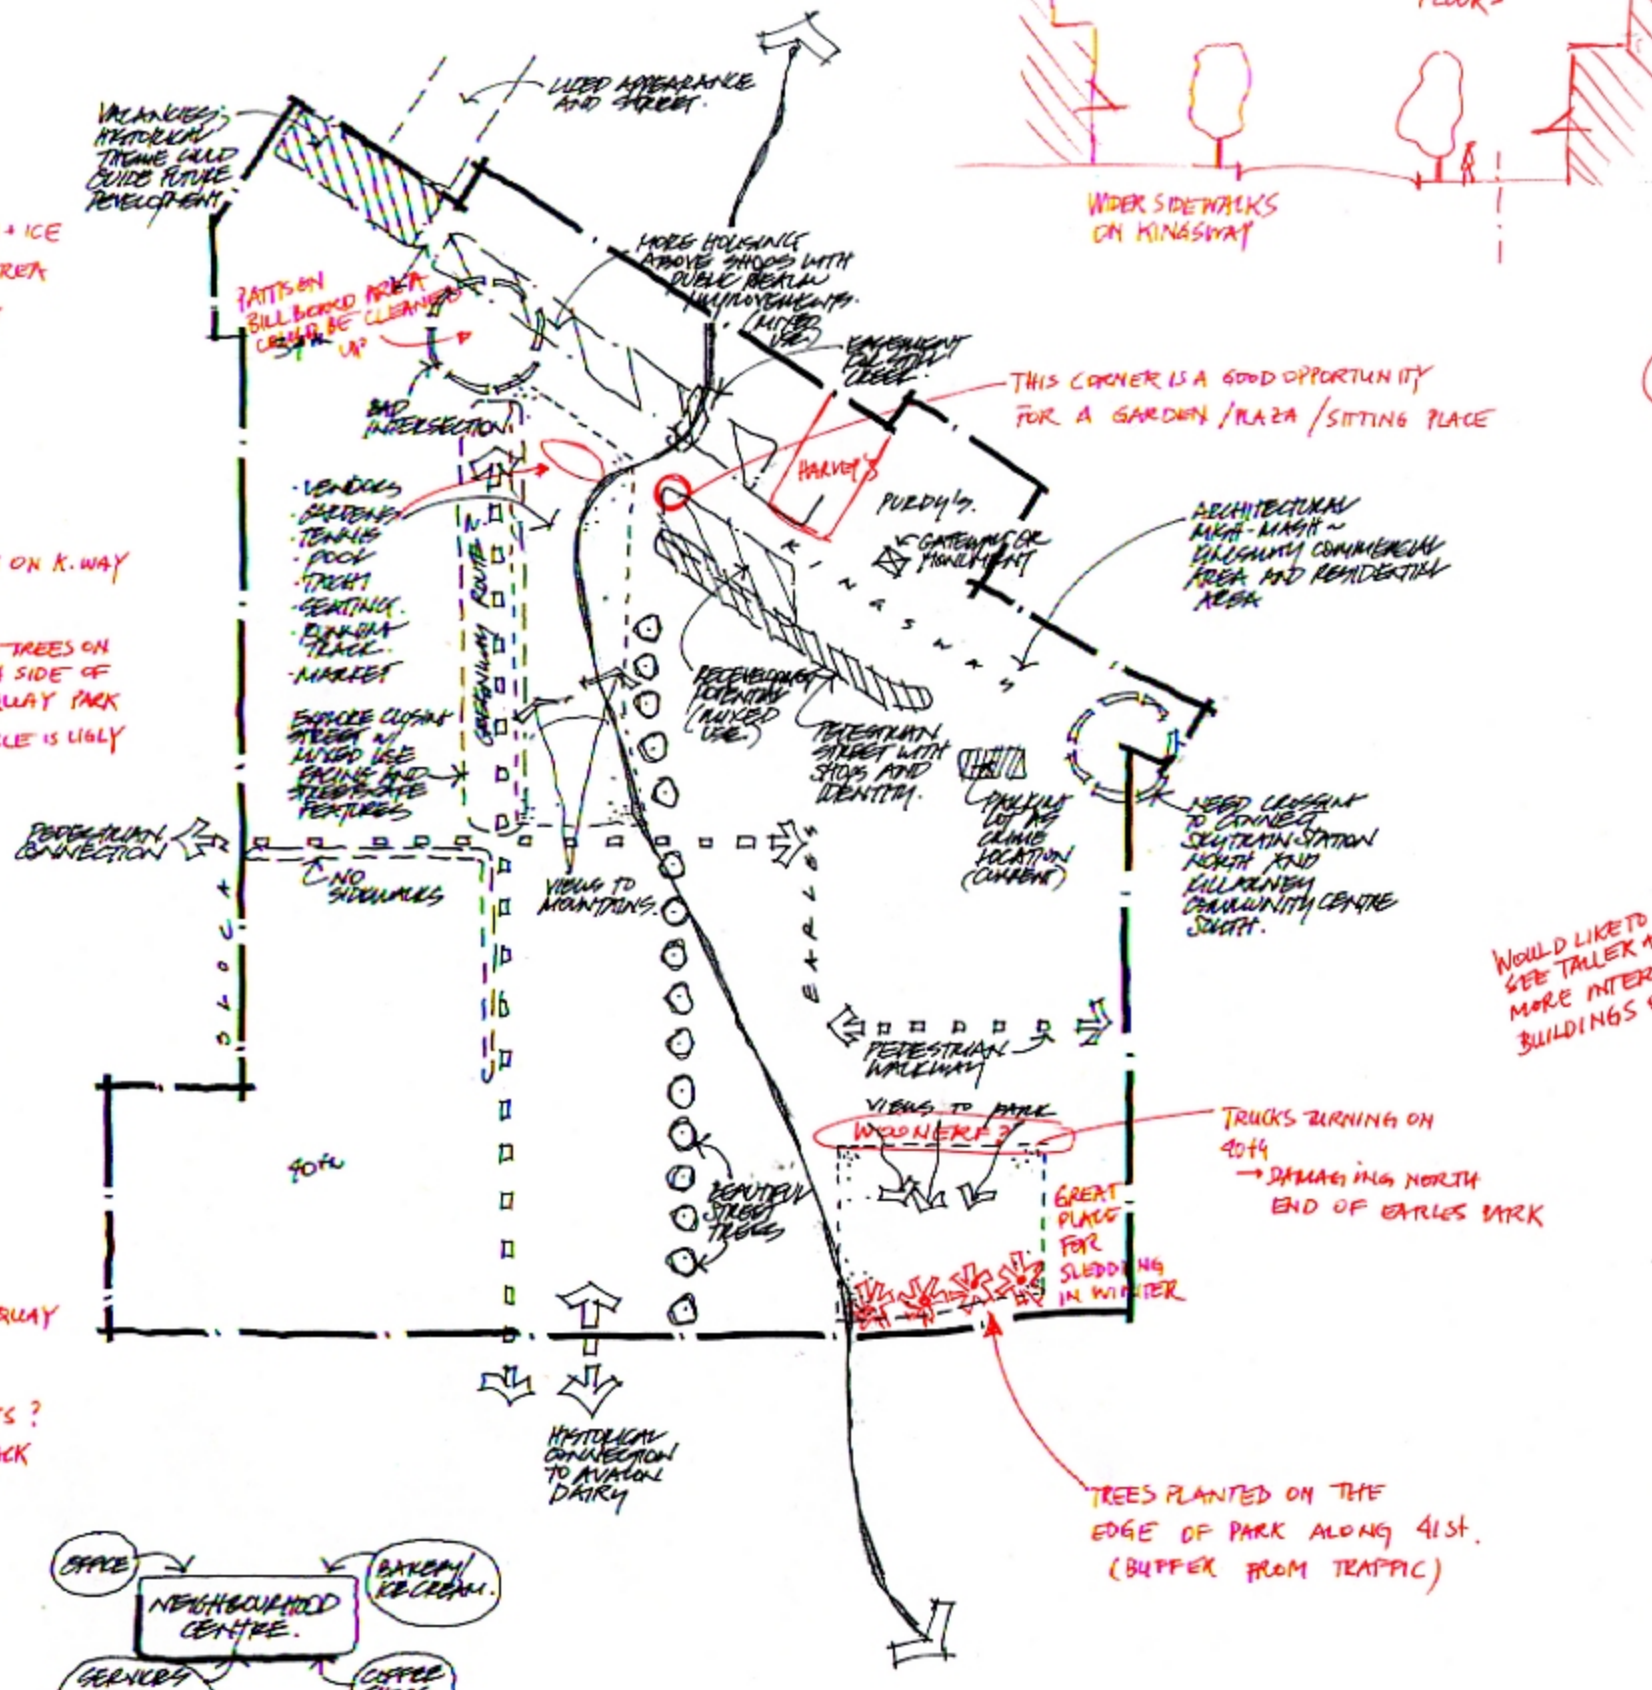 LIKED APPEARANCE
AND STREET.
VACANCIES;
HISTORICAL
THEME COULD
GUIDE FUTURE
DEVELOPMENT
WIDER SIDEWALKS
ON KINGSWAY
+ ICE
PATTISON
BILLBOARD AREA
COULD BE CLEANED
UP
MORE HOUSING
ABOVE SHOPS WITH
PUBLIC REALM
IMPROVEMENTS.
(MIXED
USE)
EASEMENT
FOR STILL
CREEK.
THIS CORNER IS A GOOD OPPORTUNITY
FOR A GARDEN / PLAZA / SITTING PLACE
BAD
INTERSECTION.
HARVEY'S
PURDY'S.
GATEWAY OR
MONUMENT
KINGSWAY
ARCHITECTURAL
MISH-MASH ~
KINGSWAY COMMERCIAL
AREA AND RESIDENTIAL
AREA
· VENDORS
· GARDENS
· TENNIS
· POOL
· SEATING.
· RUNNING
TRACK.
· MARKET
GREENWAY ROUTE
ON K.WAY
TREES ON
SIDE OF
PARK
IS UGLY
EXPLORE CLOSING
STREET W/
MIXED USE
FACING AND
STREETSCAPE
FEATURES
REDEVELOPMENT
POTENTIAL
(MIXED
USE.)
PEDESTRIAN
STREET WITH
SHOPS AND
IDENTITY.
PARKING
LOT AS
CRIME
LOCATION
(CURRENT)
NEED CROSSING
TO CONNECT
SKYTRAIN STATION
NORTH AND
KILLARNEY
COMMUNITY CENTRE
SOUTH.
PEDESTRIAN
CONNECTION
NO
SIDEWALKS
VIEWS TO
MOUNTAINS.
SLOCA
EARLES
WOULD LIKE TO
SEE TALLER
MORE INTER
BUILDINGS
PEDESTRIAN
WALKWAY
VIEWS TO PARK
WOONERF?
TRUCKS TURNING ON
40th
→ DAMAGING NORTH
END OF EARLES PARK
40th
BEAUTIFUL
STREET
TREES
GREAT
PLACE
FOR
SLEDDING
IN WINTER
HISTORICAL
CONNECTION
TO AVALON
DAIRY
TREES PLANTED ON THE
EDGE OF PARK ALONG 41st.
(BUFFER FROM TRAFFIC)
OFFICE
BAKERY/
ICE CREAM.
NEIGHBOURHOOD
CENTRE.
SERVICES
COFFEE